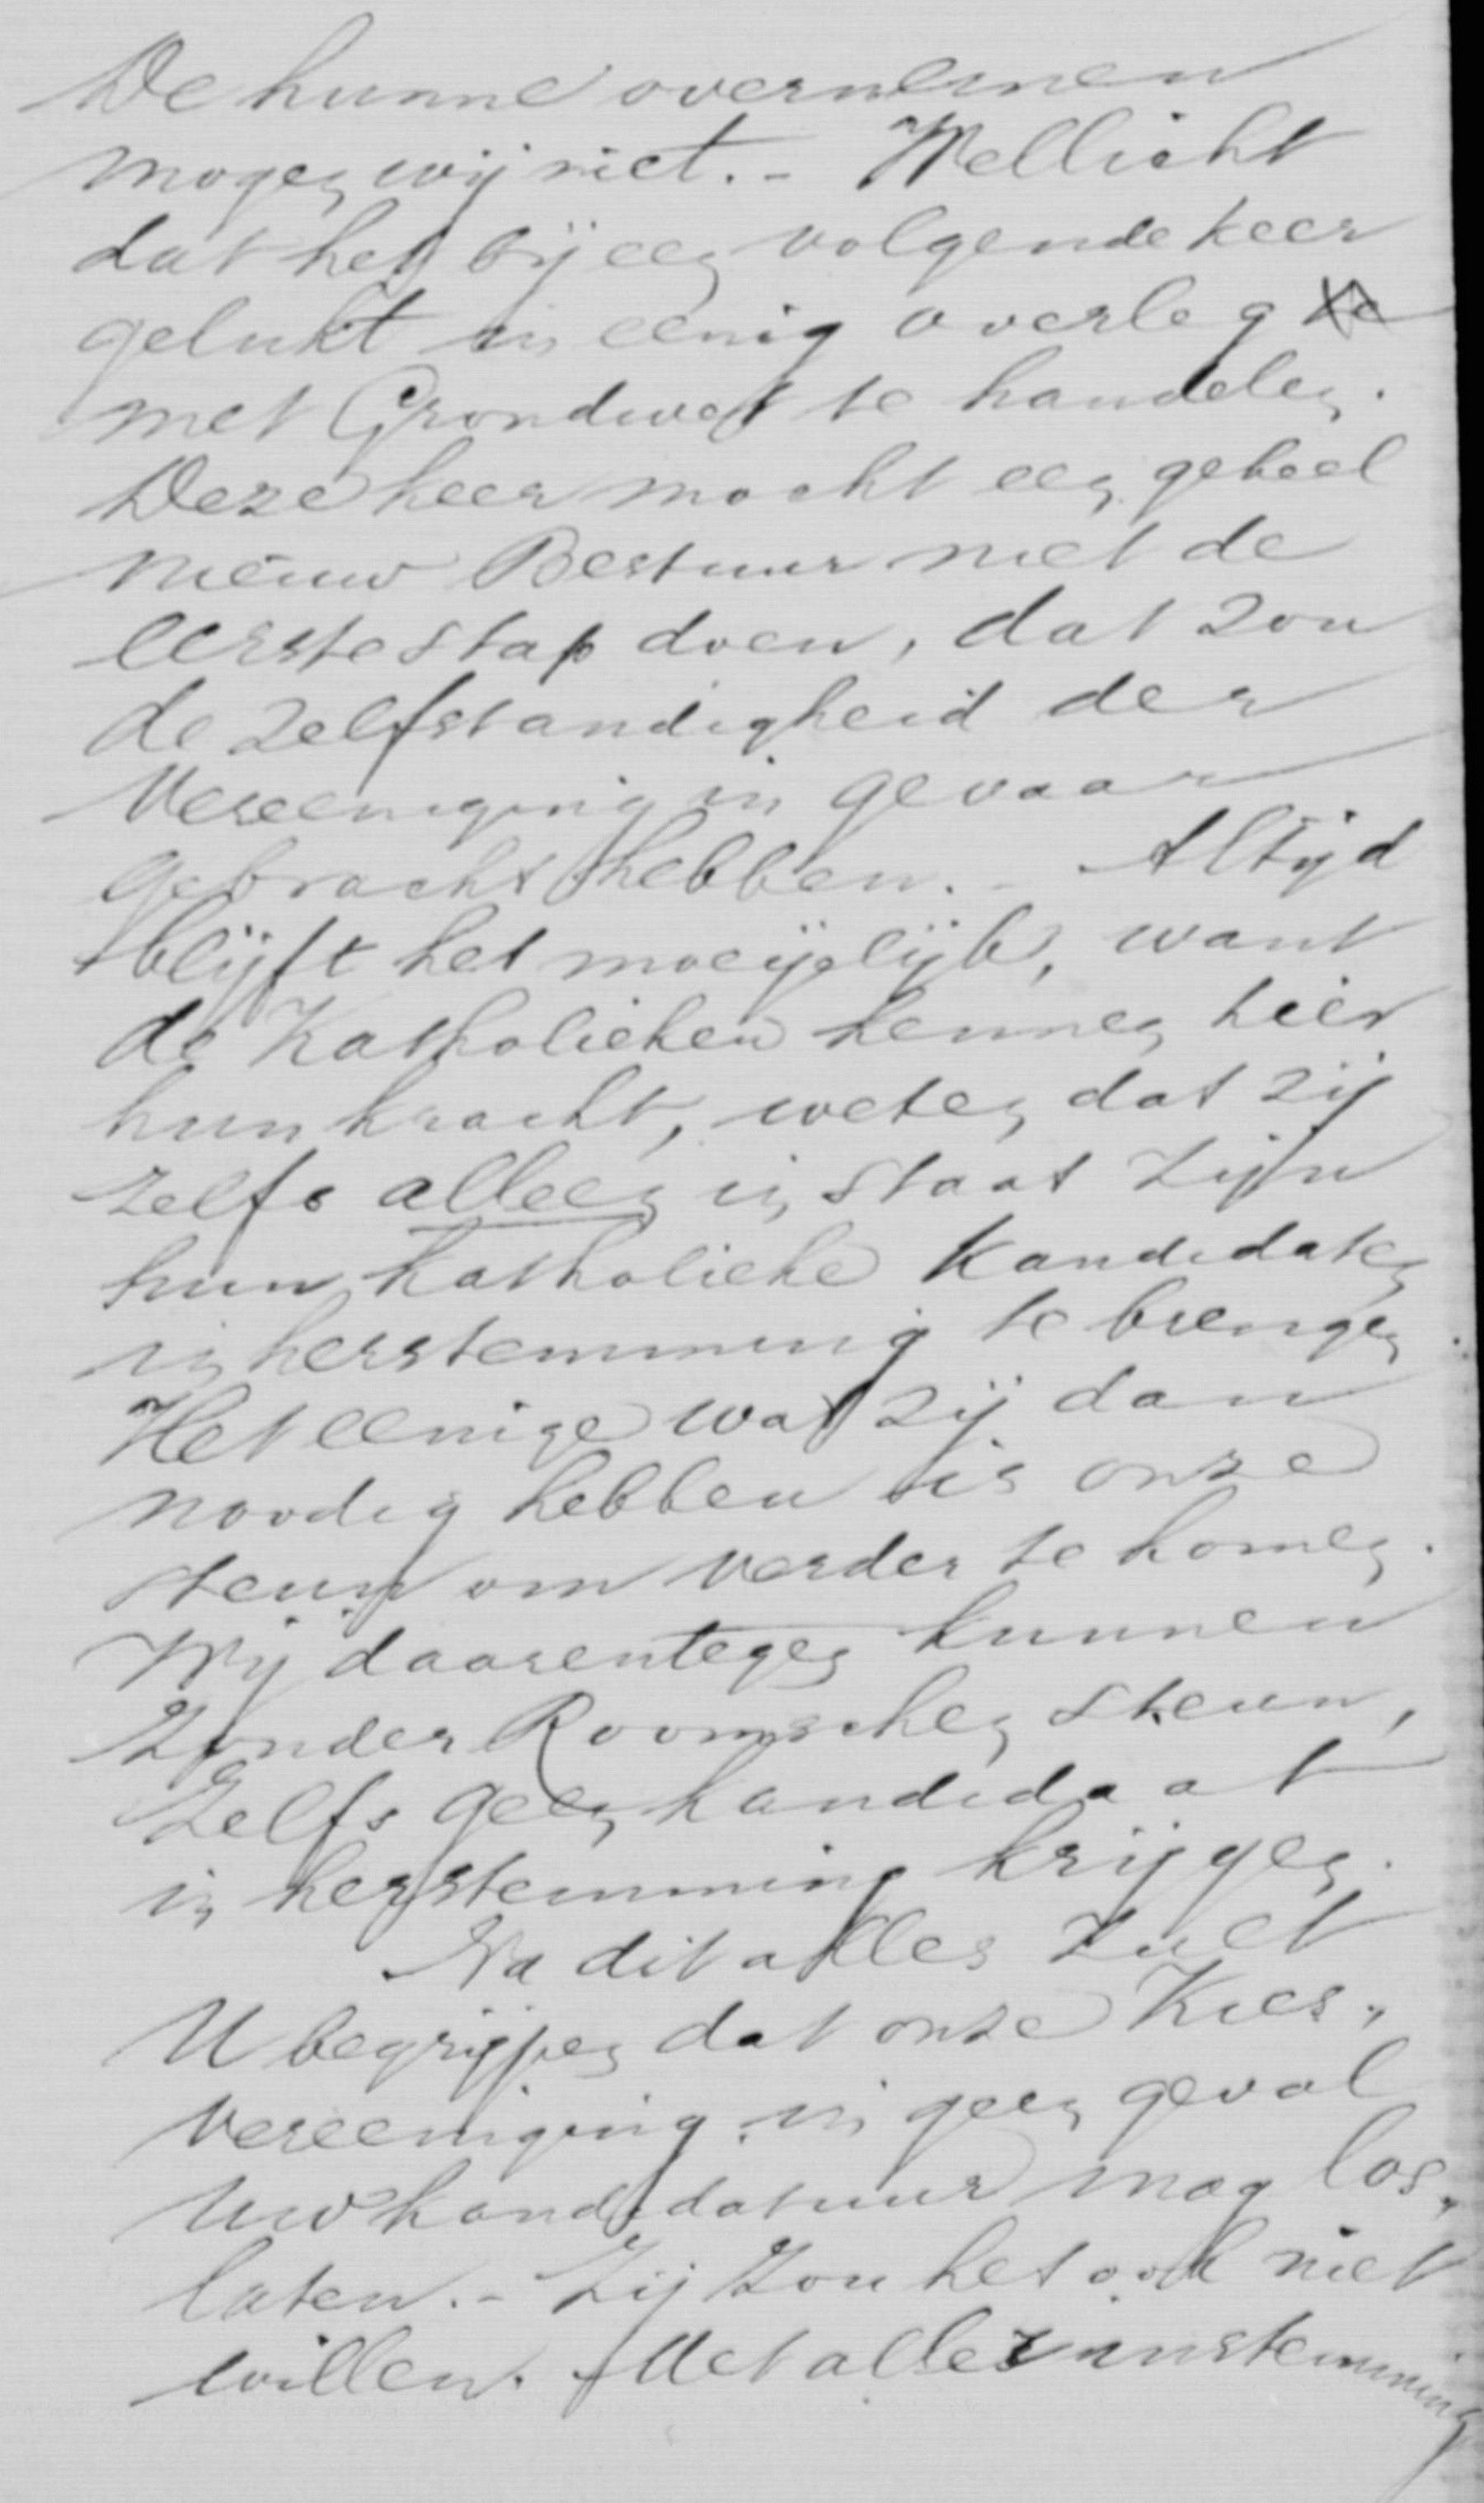 De hunne overnemen
mogen wij niet. - Wellicht
dat het bij een volgende keer
gelukt in eenig overleg
met Grondwet te handelen.
Deze keer mocht een geheel
nieuw Bestuur niet de
eerste stap doen, dat zou
de zelfstandigheid der
Vereeniging in gevaar
gebracht hebben. - Altijd
blijft het moeijelijk, want
de Katholieken kennen hier
hun kracht, weten dat zij
zelfs alleen in staat zijn
hun Katholieke Kandidaten
in herstemming te brengen.
Het eenige wat zij dan
noodig hebben is onze
steun om verder te komen.
Wij daarentegen kunnen
zonder Roomschen steun,
zelfs geen kandidaat
in herstemming krijgen.
Na dit alles zult
U begrijpen dat onze Kies-
vereeniging in geen geval
Uw kandidatuur mag los-
laten. - Zij zou het ook niet
willen. Met aller instemming